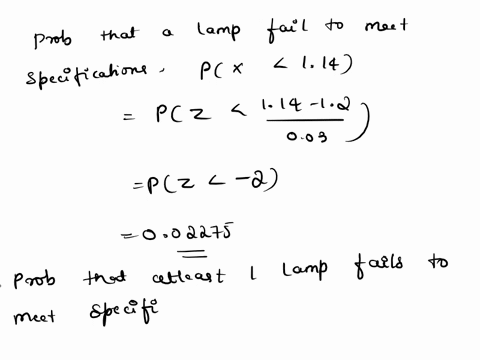 Prob that a lamp fail to meet
specifications. P(x < 1.14)
= P(z < (1.14-1.2)/0.03)
= P(z < -2)
= 0.02275
. Prob that atleast 1 lamp fails to
meet specifi